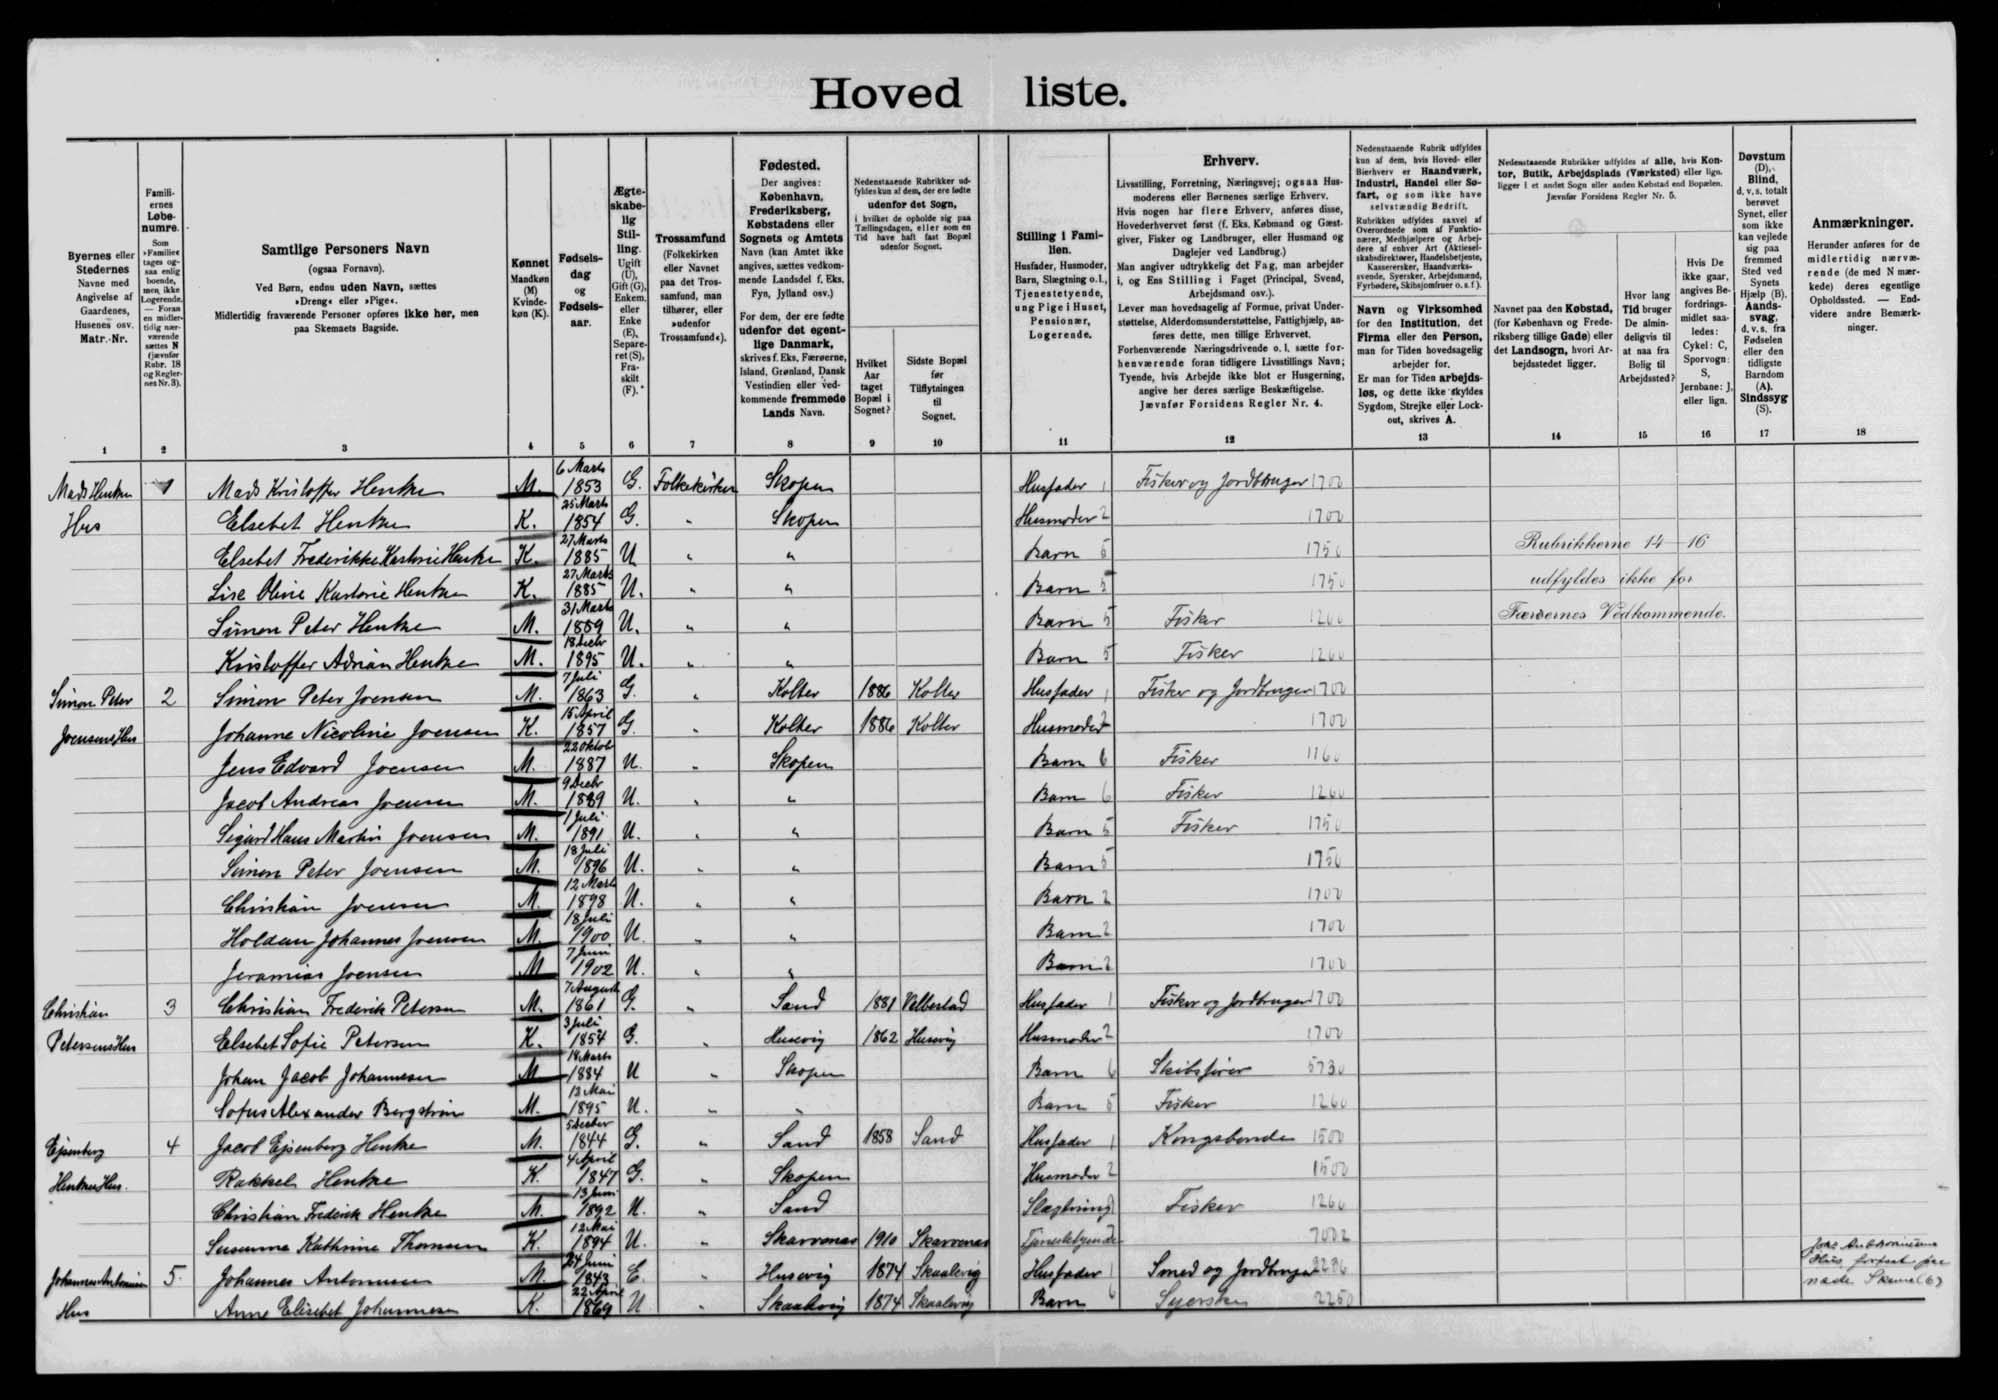 Hoved liste.
Byernes eller Stedernes Navne med Angivelse af Gaardenes, Husenes osv. Matr.-Nr.
Familiernes Løbenumre. Som »Familie« tages ogsaa enlig boende, men ikke Logerende. — Foran en midlertidig nærværende sættes N (jævnfør Rubr. 18 og Reglernes Nr. 3).
Samtlige Personers Navn (ogsaa Fornavn). Ved Børn, endnu uden Navn, sættes »Dreng« eller »Pige«. Midlertidig fraværende Personer opføres ikke her, men paa Skemaets Bagside.
Kønnet Mandkøn (M) Kvindekøn (K).
Fødselsdag og Fødselsaar.
Ægteskabelig Stilling. Ugift (U), Gift (G), Enkem. eller Enke (E), Separeret (S), Fraskilt (F).
Trossamfund (Folkekirken eller Navnet paa det Trossamfund, man tilhører, eller »udenfor Trossamfund«).
Fødested. Der angives: København, Frederiksberg, Købstadens eller Sognets og Amtets Navn (kan Amtet ikke angives, sættes vedkommende Landsdel f. Eks. Fyn, Jylland osv.) For dem, der ere fødte udenfor det egentlige Danmark, skrives f. Eks. Færøerne, Island, Grønland, Dansk Vestindien eller vedkommende fremmede Lands Navn.
Nedenstaaende Rubrikker udfyldes kun af dem, der ere fødte udenfor det Sogn, i hvilket de opholde sig paa Tællingsdagen, eller som en Tid have haft fast Bopæl udenfor Sognet.
Hvilket Aar taget Bopæl i Sognet?
Sidste Bopæl før Tilflytningen til Sognet.
Stilling i Familien. Husfader, Husmoder, Barn, Slægtning o.l., Tjenestetyende, ung Pige i Huset, Pensionær, Logerende.
Erhverv. Livsstilling, Forretning, Næringsvej; ogsaa Husmoderens eller Børnenes særlige Erhverv. Hvis nogen har flere Erhverv, anføres disse, Hovederhvervet først (f. Eks. Købmand og Gæstgiver, Fisker og Landbruger, eller Husmand og Daglejer ved Landbrug.) Man angiver udtrykkelig det Fag, man arbejder i, og Ens Stilling i Faget (Principal, Svend, Arbejdsmand osv.). Lever man hovedsagelig af Formue, privat Understøttelse, Alderdomsunderstøttelse, Fattighjælp, anføres dette, men tillige Erhvervet. Forhenværende Næringsdrivende o. l. sætte forhenværende foran tidligere Livsstillings Navn; Tyende, hvis Arbejde ikke blot er Husgerning, angive her deres særlige Beskæftigelse. Jævnfør Forsidens Regler Nr. 4.
Nedenstaaende Rubrik udfyldes kun af dem, hvis Hoved- eller Bierhverv er Haandværk, Industri, Handel eller Søfart, og som ikke have selvstændig Bedrift. Rubrikken udfyldes saavel af Overordnede som af Funktionærer, Medhjælpere og Arbejdere af enhver Art (Aktieselskabsdirektører, Handelsbetjente, Kasserersker, Haandværkssvende, Syersker, Arbejdsmænd, Fyrbødere, Skibsjomfruer o. s. f.).
Navn og Virksomhed for den Institution, det Firma eller den Person, man for Tiden hovedsagelig arbejder for. Er man for Tiden arbejdsløs, og dette ikke skyldes Sygdom, Strejke eller Lockout, skrives A.
Nedenstaaende Rubrikker udfyldes af alle, hvis Kontor, Butik, Arbejdsplads (Værksted) eller lign. ligger i et andet Sogn eller anden Købstad end Bopælen. Jævnfør Forsidens Regler Nr. 5.
Navnet paa den Købstad, (for København og Frederiksberg tillige Gade) eller det Landsogn, hvori Arbejdsstedet ligger.
Hvor lang Tid bruger De almindeligvis til at naa fra Bolig til Arbejdssted?
Hvis De ikke gaar, angives Befordringsmidlet saaledes: Cykel: C, Sporvogn: S, Jernbane: J, eller lign.
Døvstum (D), Blind, d. v. s. totalt berøvet Synet, eller som ikke kan vejlede sig paa fremmed Sted ved Synets Hjælp (B). Aandssvag, d. v. s. fra Fødselen eller den tidligste Barndom (A). Sindssyg (S).
Anmærkninger. Herunder anføres for de midlertidig nærværende (de med N mærkede) deres egentlige Opholdssted. — Endvidere andre Bemærkninger.
1 2 3 4 5 6 7 8 9 10 11 12 13 14 15 16 17 18
Mads Henke 1 Mads Kristoffer Henke M. 6 Marts 1853 G. Folkekirken Skopen Husfader 1 Fisker og Jordbruger 1700
Hus Elsebet Henke K. 25 Marts 1854 G. " Skopen Husmoder 2 1700
Elsebet Frederikke Henke K. 27 Marts 1885 U " " Barn 5 1750 Rubrikkerne 14 - 16
Lise Oline Henke K. 27 Marts 1885 U. " " Barn 5 1750 udfyldes ikke for
Simon Peter Henke M. 31 Marts U. " " Barn 5 Fisker 1260 Færøernes Vedkommende.
Kristoffer Adrian Henke M. 18 Decbr 1895 U. " " Barn 5 Fisker 1260
Simon Peter 2 Simon Peter Joensen M. 7 Juli 1863 G. " Kolter 1886 Kolter Husfader 1 Fisker og Jordbruger 1700
Joensens Hus Johanne Nicoline Joensen K. 15 April 1857 G. " Kolter 1886 Kolter Husmoder 2 1700
Jens Edvard Joensen M. 22 Oktob 1887 U. " Skopen Barn 6 Fisker 1160
Jacob Andreas Joensen M. 9 Decbr 1889 U. " " Barn 6 Fisker 1260
Sigurd Hans Martin Joensen M. 1 Juli 1891 U. " " Barn 5 Fisker 1750
Simon Peter Joensen M. 18 Juli 1896 U. " " Barn 5 1750
Christian Joensen M. 12 Marts 1898 U. " " Barn 2 1700
Johannes Joensen M. 18 Juli 1900 U. " " Barn 2 1700
Jeramias Joensen M 7 Juni 1902 U. " " Barn 2 1700
Christian 3 Christian Frederik Petersen M. 7 August 1861 G. " Sand 1881 Velbestad Husfader 1 Fisker og Jordbruger 1700
Petersens Hus Elsebet Sofie Petersen K. 3 Juli 1854 G. " Husevig 1862 Husevig Husmoder 2 1700
Johan Jacob Johannesen M 18 Marts 1884 U " Skopen Barn 6 Skibsfører 5730
Sofus Alexander Bergstrøm M. 13 Mai 1895 U. " " Barn 5 Fisker 1260
Ejsenberg 4 Jacob Ejsenberg Henke M. 5 Decber 1844 G. " Sand 1858 Sand Husfader 1 Kongsbonde 1500
Henkes Hus. Rakkel Henke K. 4 April 1847 G. " Skopen Husmoder 2 1500
Christian Frederik Henke M. 13 Juni 1892 U. " Sand Slægtning Fisker 1260
Susanne Kathrine Thomsen K. 12 Mai 1894 U. " Skarvenes 1910 Skarvenes Tjenestetyende 7002
Johannes Antonius 5. Johannes Antoniussen M. 24 Juni 1843 E. " Husevig 1874 Skaalevig Husfader 1 Smed og Jordbruger 2236
Hus Anne Elisebet Johannesen K. 22 April 1869 U " Skaalevig 1874 Skaalevig Barn 6 Syerske 2250
Hus fortsat paa
næste Skema (6)